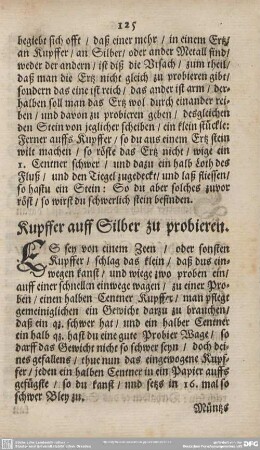 125
begiebt sich offt / daß einer mehr / in einem Ertz/
an Kupffer / an Silber / oder ander Metall sind/
weder der andern / ist diß die Ursach / zum theil/
daß man die Ertz nicht gleich zu probieren gibt/
sondern das eine ist reich / das ander ist arm / der-
halben soll man das Ertz wol durch einander rei-
ben / und davon zu probieren geben / desgleichen
den Stein von jeglicher scheiben / ein klein stückle:
Ferner auffs Kupffer / so du aus einem Ertz stein
wilt machen / so röste das Ertz nicht / wige ein
1. Centner schwer / und dazu ein halb Loth des
Fluß / und den Tiegel zugedeckt / und laß fliessen/
so hastu ein Stein: So du aber solches zuvor
röst / so wirst du schwerlich stein befinden.
Kupffer auff Silber zu probieren.
ES sey von einem Zeen / oder sonsten
Kupffer / schlag das klein / daß dus ein-
wegen kanst / und wiege zwo proben ein/
auff einer schnellen einwege wagen / zu einer Pro-
ben / einen halben Centner Kupffer / man pflegt
gemeiniglichen ein Gewicht darzu zu brauchen/
daß ein qz. schwer hat / und ein halber Centner
ein halb qz. hast du eine gute Probier Wage / so
darff das Gewicht nicht so schwer seyn / doch dei-
nes gefallens / thue nun das eingewogene Kupf-
fer / jeden ein halben Centner in ein Papier auffs
gefügste / so du kanst / und setzs in 16. mal so
schwer Bley zu.
Müntzs